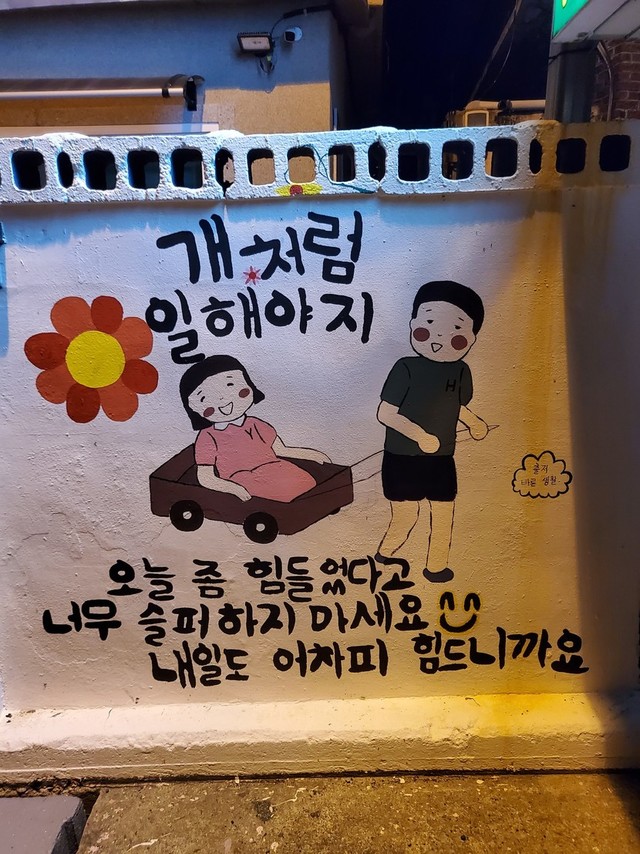 개처럼
일해야지
H
Y
오늘 좀 힘들었다고
너무 슬퍼하지 마세요
내일도 어차피 힘드니까요